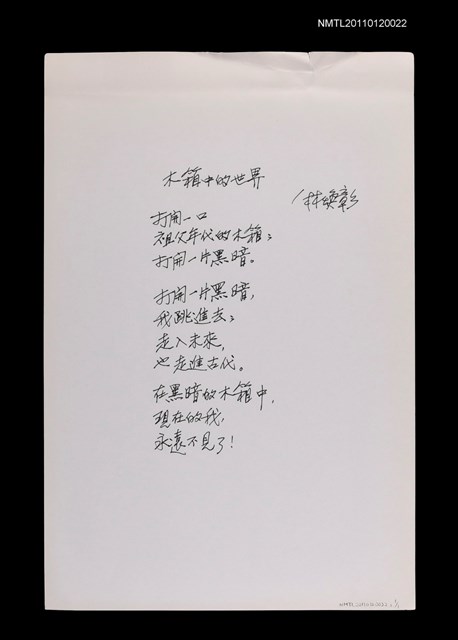 NMTL20110120022
木箱中的世界
林煥彰
打開一口
祖父年代的木箱；
打開一片黑暗。
打開一片黑暗，
我跳進去；
走入未來，
也走進古代。
在黑暗的木箱中，
現在的我，
永遠不見了！